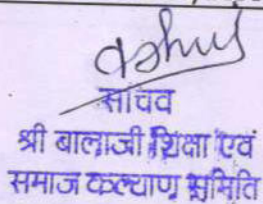 सचिव
श्री बालाजी शिक्षा एवं
समाज कल्याण समिति